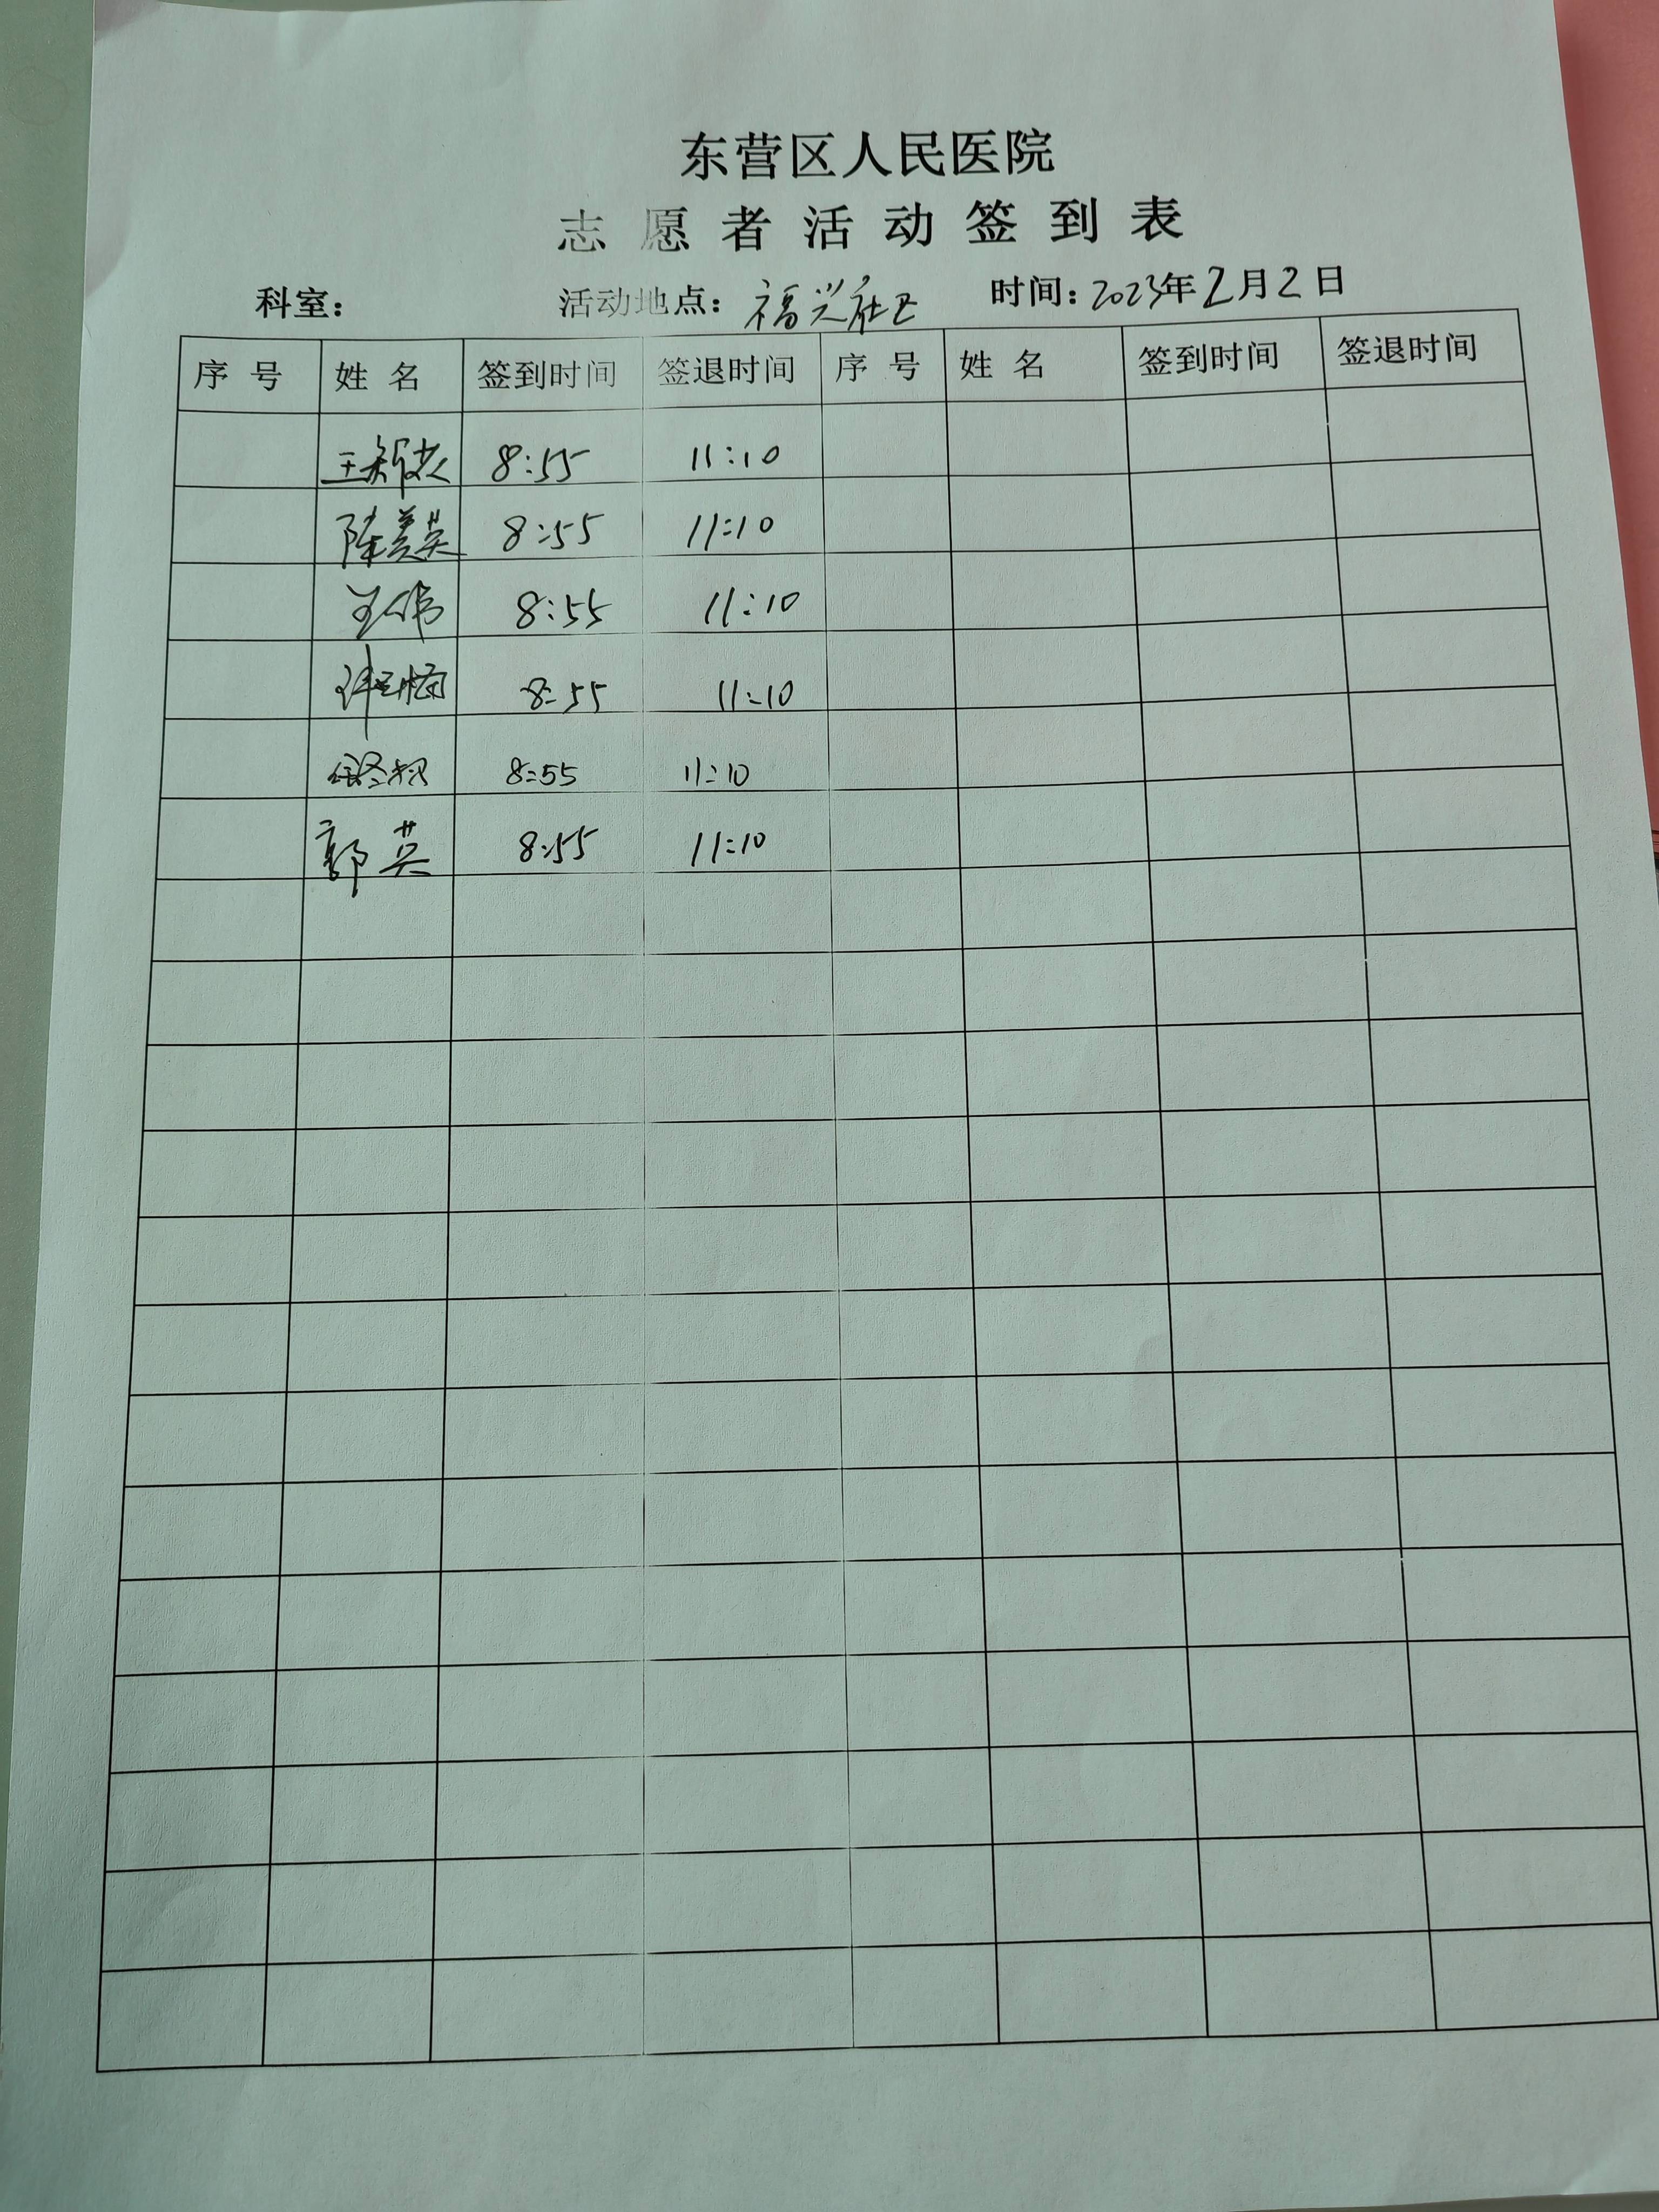 东营区人民医院
志愿者活动签到表
科室: 活动地点: 福兴社区 时间: 2023年2月2日
序号 姓名 签到时间 签退时间 序号 姓名 签到时间 签退时间
8:55 11:10
陈美英 8:55 11:10
王伟 8:55 11:10
8:55 11:10
8:55 11:10
郭英 8:55 11:10